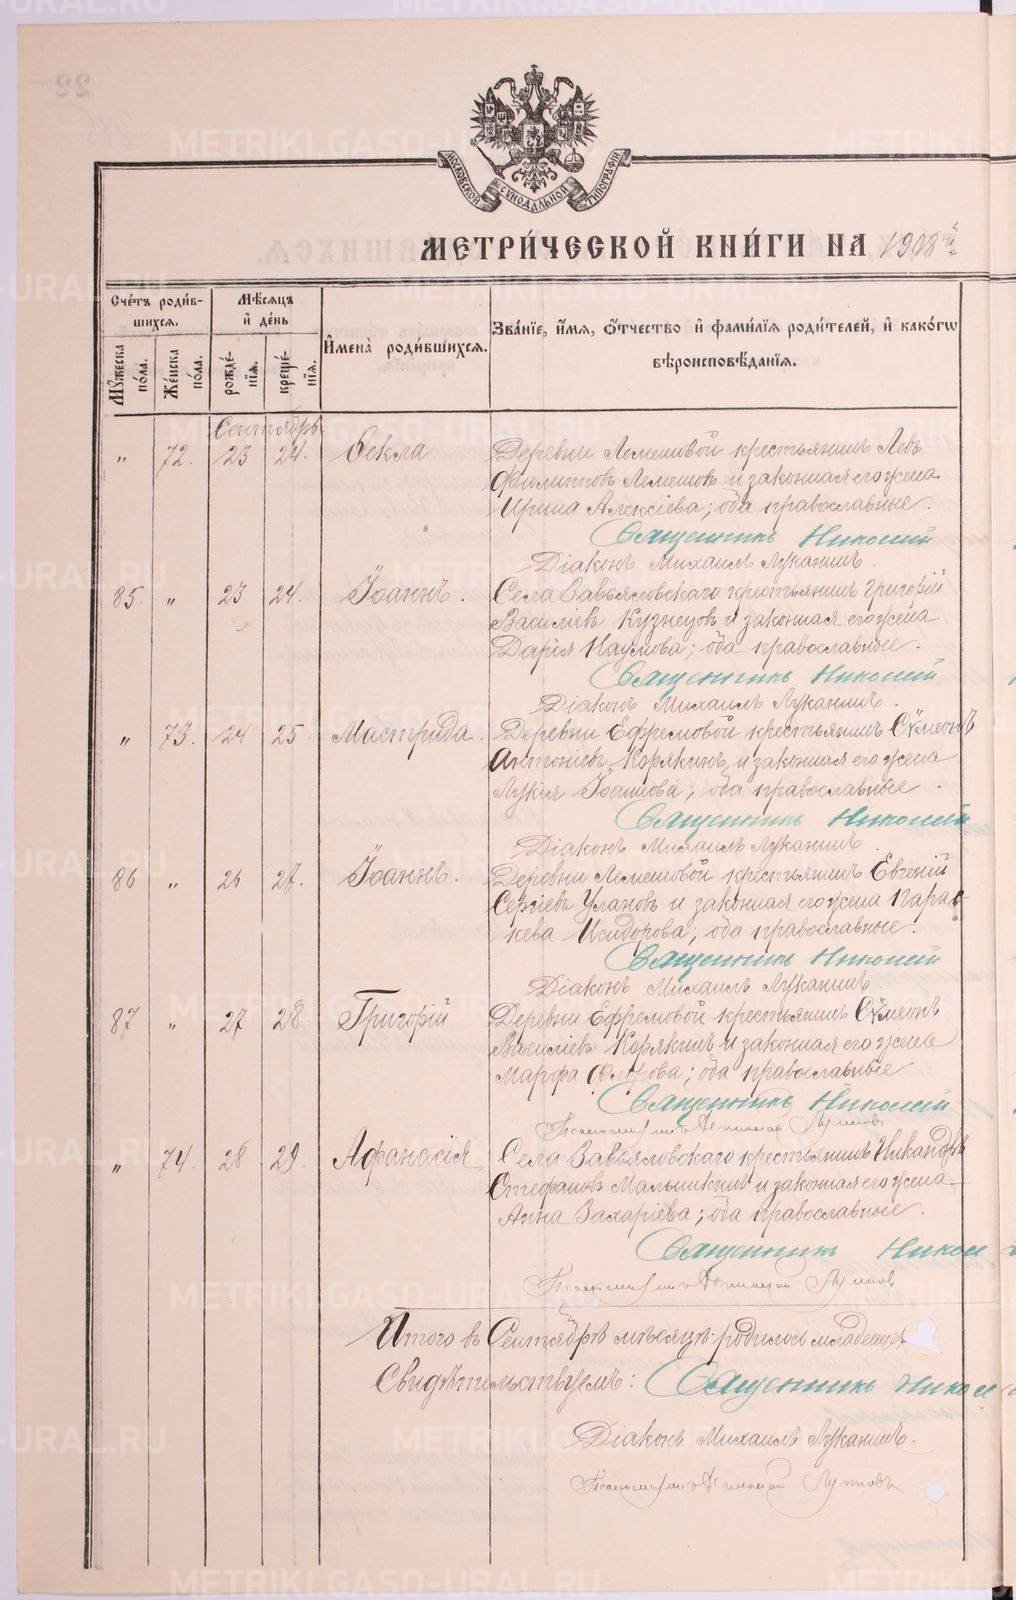 МОСКОВСКОЙ СѴНОДАЛЬНОЙ ТИПОГРАФІИ
МЕТРИ́ЧЕСКОЙ КНИ́ГИ НА 1908й
Сче́тъ роди́вшихся.
Мѣ́сяцъ и҆ де́нь
И҆мена̀ роди́вшихся.
Зва́нїе, и҆́мя, ѻ҆́тчество и҆ фами́лїя роди́телей, и҆ како́гѡ вѣроисповѣ́данїя.
Мꙋ́жеска по́ла.
Же́нска по́ла.
рожде́нїя.
креще́нїя.
Сентябрь
„ 72. 23 24. Ѳекла Деревни Лемешовой крестьянинъ Левъ
Филипповъ Лемешовъ и законная его жена
Ирина Алексіева; оба православные.
Священникъ Николай
Діаконъ Михаилъ Луканинъ.
85. „ 23 24. Іоаннъ. Села Завьяловскаго крестьянинъ Григорій
Василіевъ Кузнецовъ и законная его жена
Дарія Наумова; оба православные.
Священникъ Николай
Діаконъ Михаилъ Луканинъ.
„ 73. 24 25. Мастридіа. Деревни Ефремовой крестьянинъ Сѵмеонъ
Антоніевъ Корякинъ и законная его жена
Лукія Іоаннова; оба православные.
Священникъ Николай
Діаконъ Михаилъ Луканинъ.
86 „ 26 27. Іоаннъ. Деревни Лемешовой крестьянинъ Евгеній
Сергіевъ Улановъ и законная его жена Парас-
кева Исидорова; оба православные.
Священникъ Николай
Діаконъ Михаилъ Луканинъ.
87 „ 27 28. Григорій Деревни Ефремовой крестьянинъ Сѵмеонъ
Василіевъ Корякинъ и законная его жена
Марфа Флорова; оба православные
Священникъ Николай
Псаломщикъ
„ 74. 28 29. Афанасія Села Завьяловскаго крестьянинъ Никандръ
Стефановъ Малышкинъ и законная его жена
Анна Захаріева; оба православные.
Священникъ Никол
Псаломщикъ
Итого въ Сентябрѣ мѣсяцѣ родилось младенце
Свидѣтельствуемъ: Священникъ Никола
Діаконъ Михаилъ Луканинъ.
Псаломщикъ
METRIKI.GASO-URAL.RU